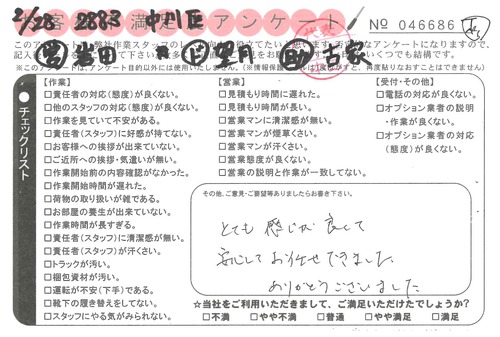 2/28 2883 中川区
お客様満足度アンケート
No 046686
チェックリスト
【作業】
□責任者の対応(態度)が良くない。
□他のスタッフの対応(態度)が良くない。
□作業を見ていて不安がある。
□責任者(スタッフ)に好感が持てない。
□お客様への挨拶が出来ていない。
□ご近所への挨拶・気遣いが無い。
□作業開始前の内容確認がなかった。
□作業開始時間が遅れた。
□荷物の取り扱いが雑である。
□お部屋の養生が出来ていない。
□作業時間が長すぎる。
□責任者(スタッフ)に清潔感が無い。
□責任者(スタッフ)が汗くさい。
□トラックが汚い。
□梱包資材が汚い。
□運転が不安(下手)である。
□靴下の履き替えをしてない。
□スタッフにやる気がみられない。
【営業】
□見積もり時間に遅れた。
□見積もり時間が長い。
□営業マンに清潔感が無い。
□営業マンが煙草くさい。
□営業マンが汗くさい。
□営業態度が良くない。
□営業の説明と作業が一致してない。
【受付・その他】
□電話の対応が良くない。
□オプション業者の説明
・作業が良くない。
□オプション業者の対応
(態度)が良くない。
その他、ご意見・ご要望等ありましたらお書き下さい。
とても感じが良くて
安心してお任せできました
ありがとうございました
☆当社をご利用いただきまして、ご満足いただけたでしょうか?
□不満 □やや不満 □普通 □やや満足 □満足